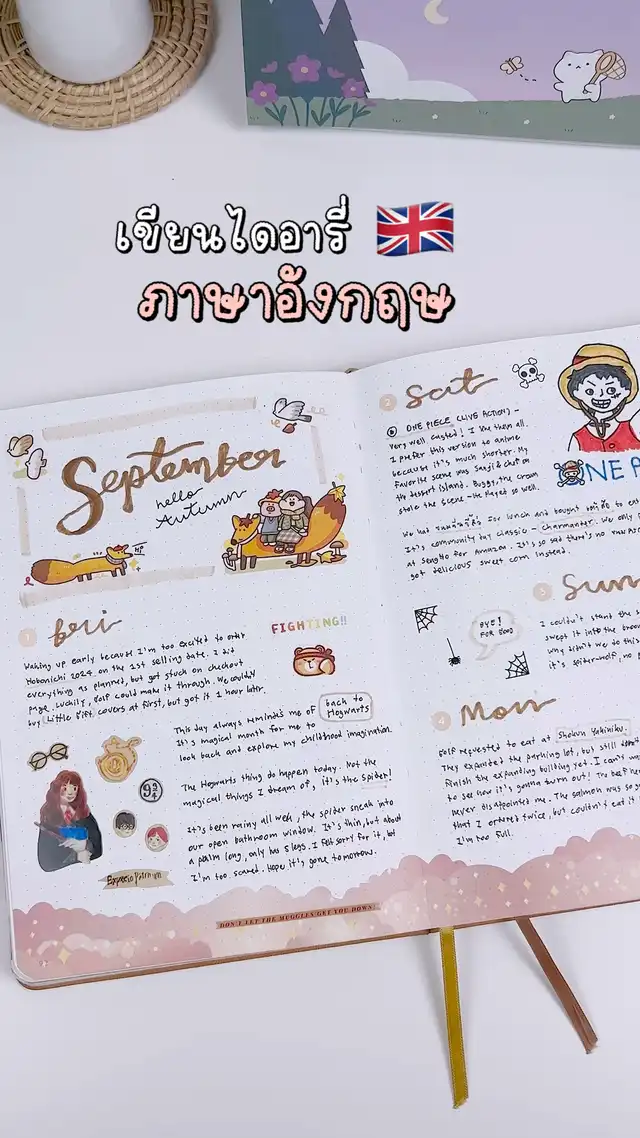 เขียนไดอารี่ 🇬🇧
ภาษาอังกฤษ
September
hello
Autumn
1 Fri
FIGHTING!!
Waking up early because I'm too excited to order
Hobonichi 2024 on the 1st selling date. I did
everything as planned, but got stuck on checkout
page. Luckily, Golf could make it through. We couldn't
buy Little Gift covers at first, but got it 1 hour later.
This day always reminds me of back to Hogwarts
It's magical month for me to
look back and explore my childhood imagination.
The Hogwarts thing do happen today. Not the
magical things I dream of, it's the spider!
It's been rainy all week, the spider sneak into
our open bathroom window. It's thin, but about
a palm long, only has 5 legs. I felt sorry for it, but
I'm too scared. Hope it's gone tomorrow.
9¾
Expecto Patronum
DON'T LET THE MUGGLES GET YOU DOWN.
2 Sat
ONE PIECE (LIVE ACTION) -
Very well casted! I like them all.
I prefer this version to anime
because it's much shorter. My
favorite scene was Sanji & chef on
the desert island. Buggy, the clown
stole the scene - He played so well.
ONE P
We had for lunch and bought to eat
It's community day classic - Charmander. We only
at Sengho for Amazon. It's so sad there's no
got delicious sweet corn instead.
3 Sun
BYE!
FOR GOOD
I couldn't stand the
swept it into the
Why didn't we do this
it's spider-half, no
4 Mon
Golf requested to eat at Shokun Yakiniku.
They expanded the parking lot, but still
finish the expanding building yet. I can't
to see how it's gonna turn out! The beef
never disappointed me. The salmon was so
that I ordered twice, but couldn't eat
I'm too full.